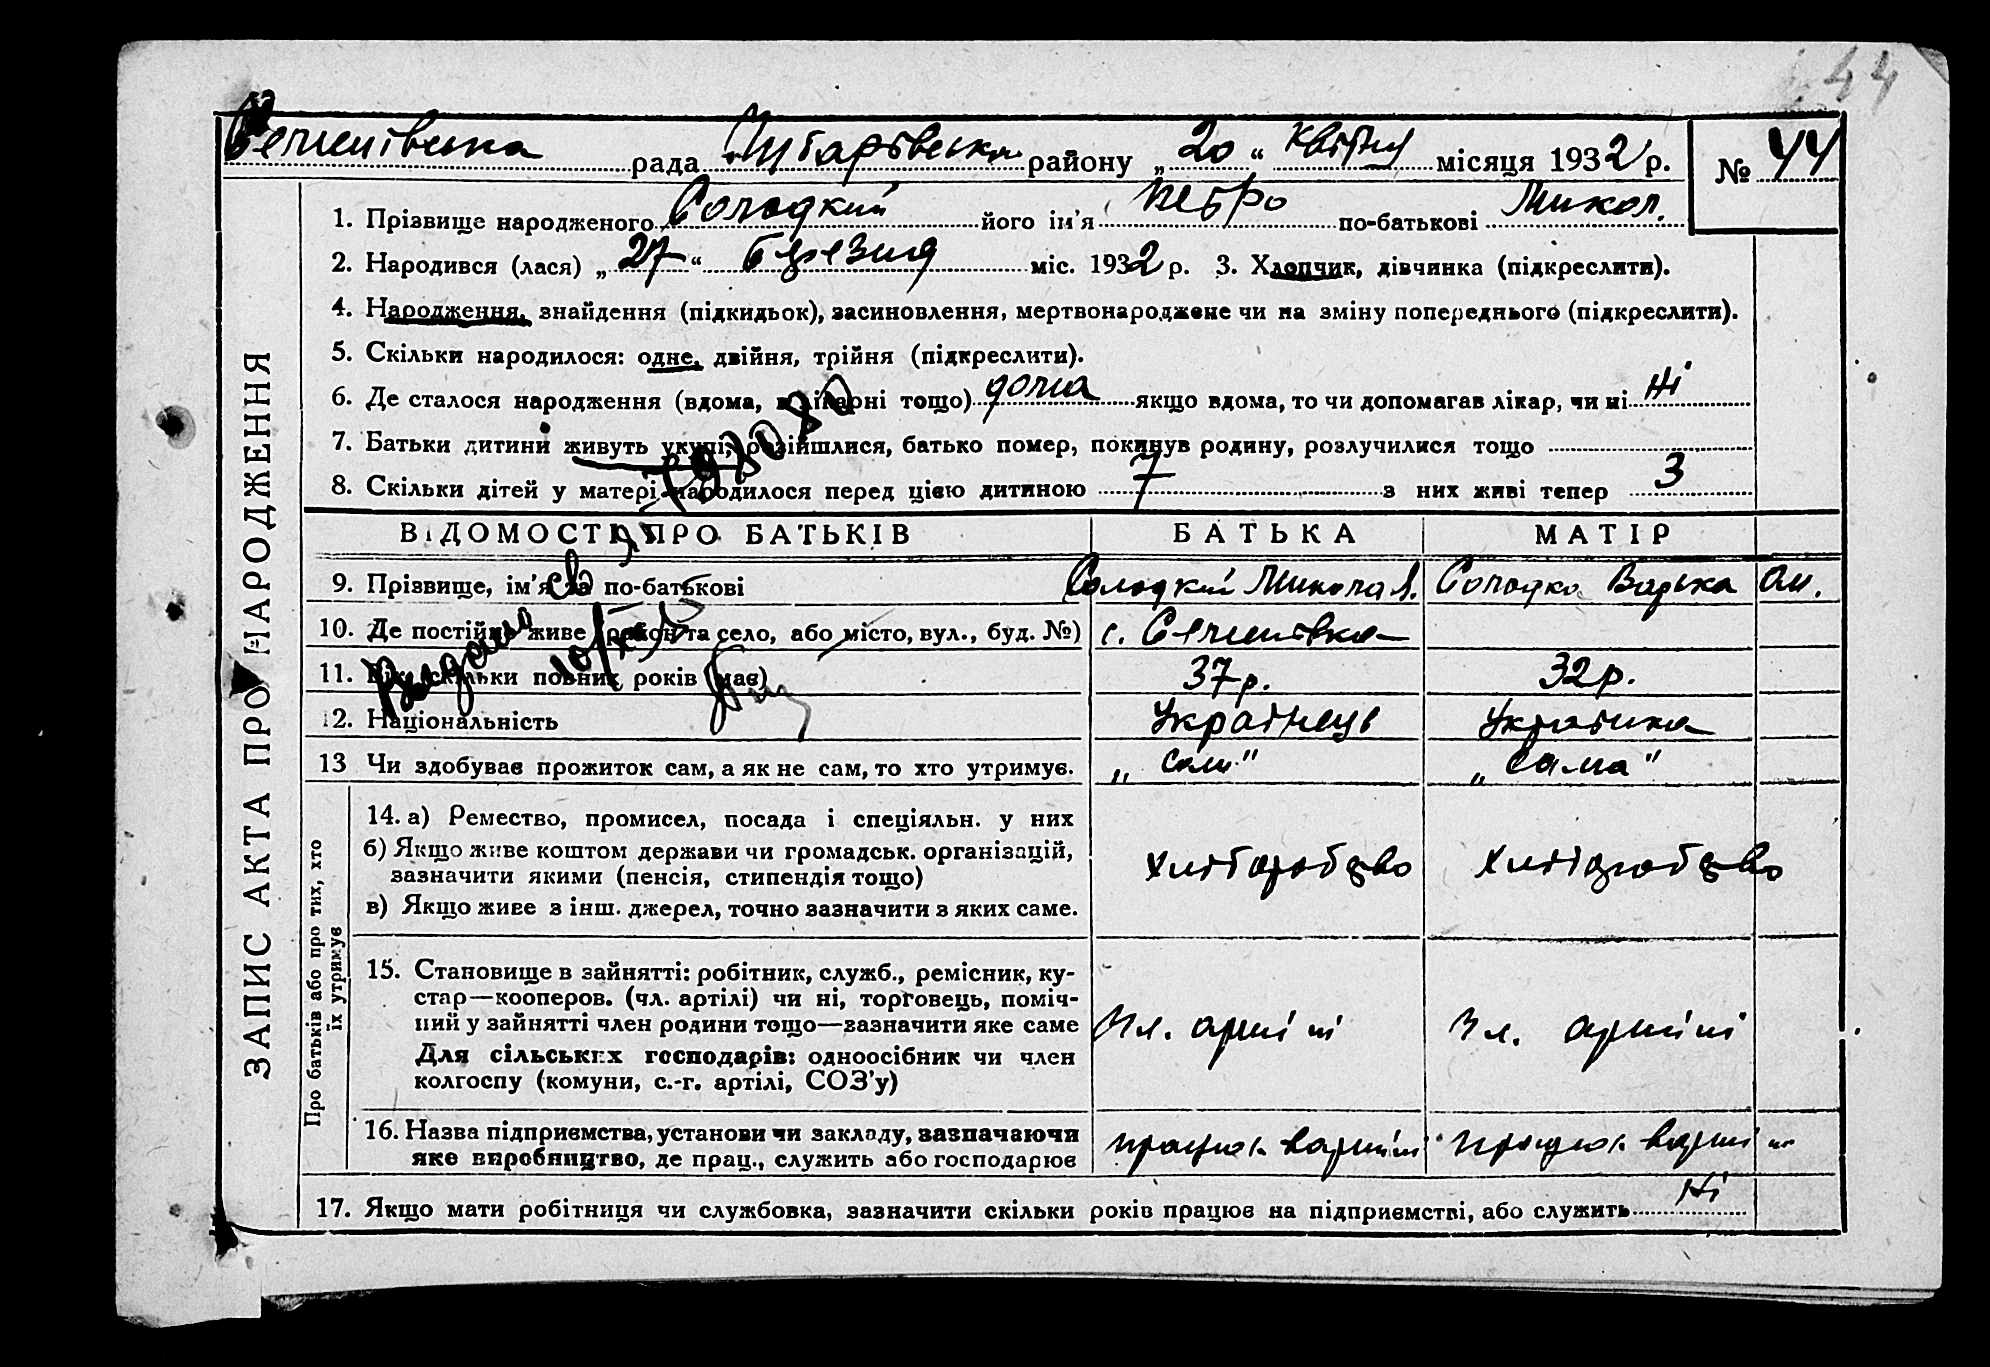 44
рада района „20“ квітня місяця 1932 р. № 44
1. Прізвище народженого Солодкий його ім'я Петро по-батькові Микол.
2. Народився (лася) „27“ березня міс. 1932 р. 3. Хлопчик, дівчинка (підкреслити).
4. Народження, знайдення (підкидьок), засиновлення, мертвонароджене чи на зміну попереднього (підкреслити).
5. Скільки народилося: одне, двійня, трійня (підкреслити).
6. Де сталося народження (вдома, в лікарні тощо) дома якщо вдома, то чи допомагав лікар, чи ні ні
7. Батьки дитини живуть укупі, розійшлися, батько помер, покинув родину, розлучилися тощо
8. Скільки дітей у матері народилося перед цією дитиною 7 з них живі тепер 3
ВІДОМОСТІ ПРО БАТЬКІВ БАТЬКА МАТІР
9. Прізвище, ім'я та по-батькові Солодкий Микола А. Солодка Варька Ом.
10. Де постійно живе (район та село, або місто, вул., буд. №) с.
11. Вік (скільки повних років має) 37 р. 32 р.
12. Національність Українець Українка
13 Чи здобуває прожиток сам, а як не сам, то хто утримує. „сам“ „сама“
14. а) Ремество, промисел, посада і спеціяльн. у них
б) Якщо живе коштом держави чи громадськ. організацій,
зазначити якими (пенсія, стипендія тощо)
в) Якщо живе з інш. джерел, точно зазначити з яких саме.
хліборобство хліборобство
15. Становище в зайнятті: робітник, служб., ремісник, ку-
стар—кооперов. (чл. артілі) чи ні, торговець, поміч-
ний у зайнятті член родини тощо—зазначити яке саме
Для сільських господарів: одноосібник чи член
колгоспу (комуни, с.-г. артілі, СОЗ'у)
Чл. артілі Чл. артілі
16. Назва підприємства, установи чи закладу, зазначаючи
яке виробництво, де прац., служить або господарює
працює в артілі працює в артілі
17. Якщо мати робітниця чи службовка, зазначити скільки років працює на підприємстві, або служить Ні
ЗАПИС АКТА ПРО НАРОДЖЕННЯ
Про батьків або про тих, хто
їх утримує